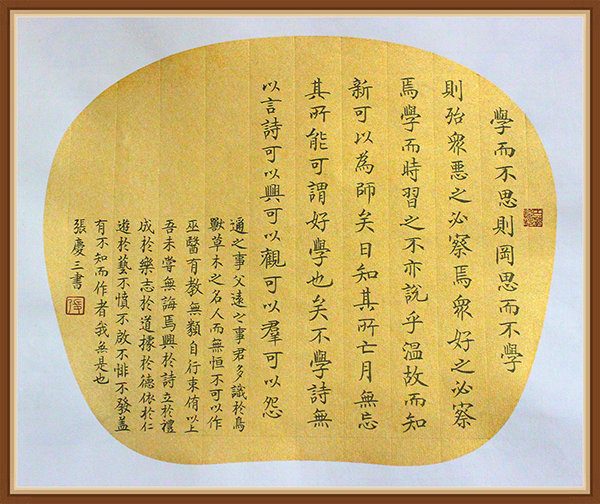 學而不思則罔思而不學
則殆衆惡之必察焉衆好之必察
焉學而時習之不亦說乎溫故而知
新可以為師矣日知其所亡月無忘
其所能可謂好學也矣不學詩無
以言詩可以興可以觀可以羣可以怨
邇之事父遠之事君多識於鳥
獸草木之名人而無恒不可以作
巫醫有教無類自行束脩以上
吾未嘗無誨焉興於詩立於禮
成於樂志於道據於德依於仁
遊於藝不憤不啟不悱不發蓋
有不知而作者我無是也
張慶三書